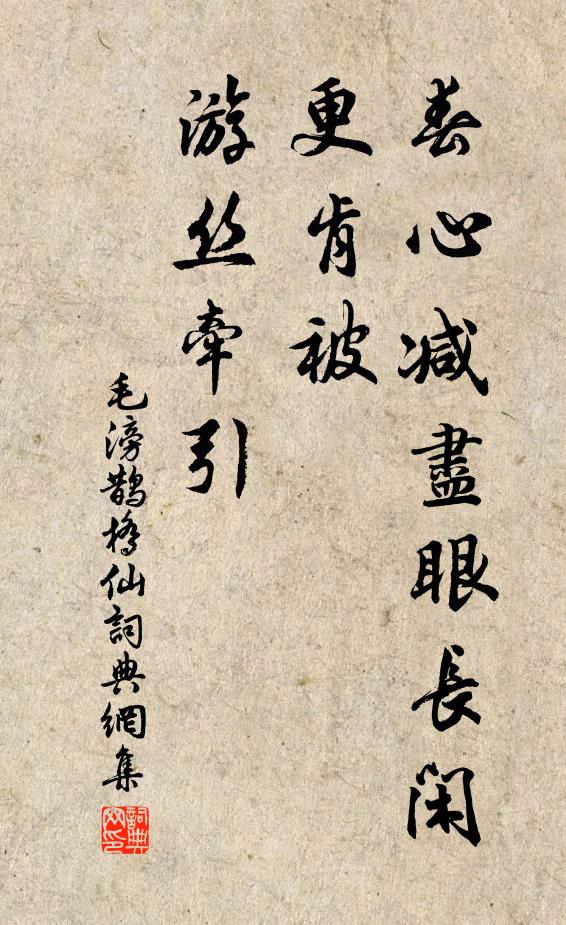 春心减盡眼長闲
更肯被
游丝牵引
毛滂鹊橋仙詞典網集
詞典
网印